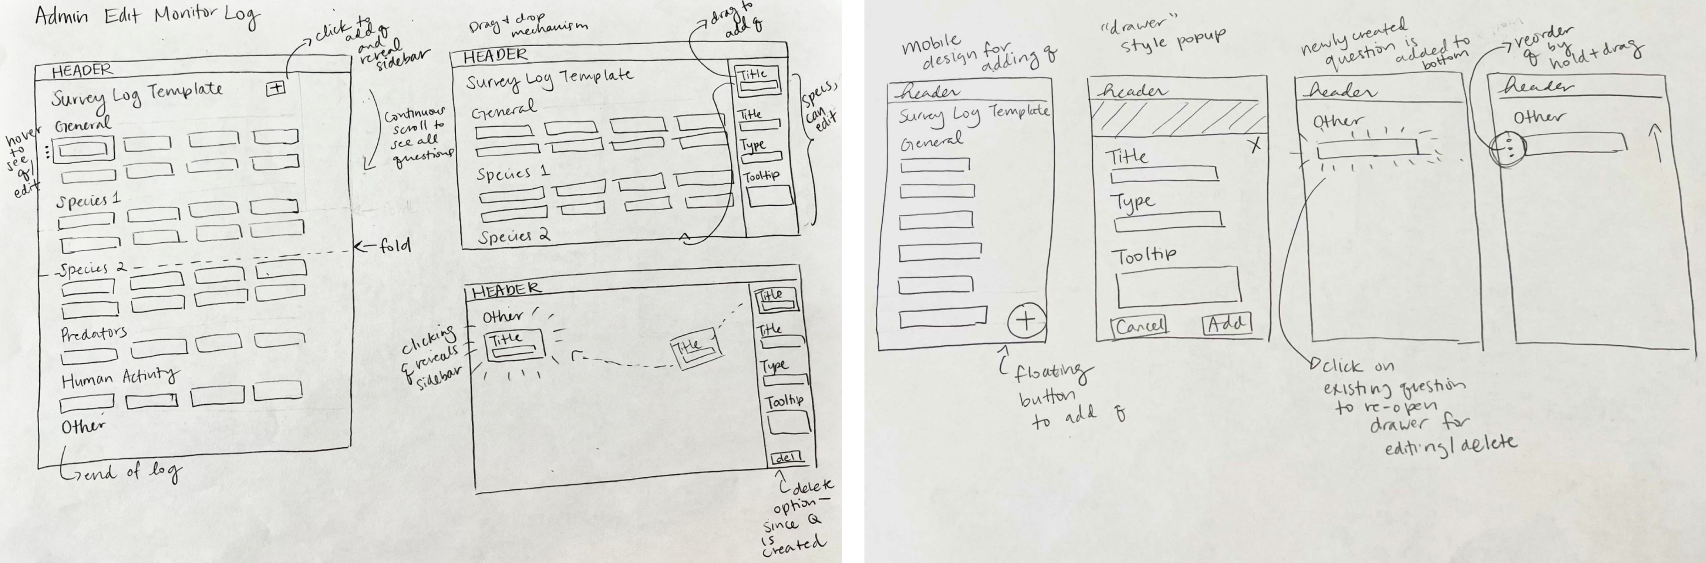 Admin Edit Monitor Log
click to
add q
and
reveal
sidebar
HEADER
Survey Log Template
+
General
hover
to
see
q/
edit
Continuous
scroll to
see all
questions
Species 1
fold
Species 2
Predators
Human Activity
Other
end of log
Drag + drop
mechanism
drag to
add q
HEADER
Survey Log Template
General
Species 1
Species 2
Title
Title
Type
Tooltip
Specs,
can
edit
HEADER
Other
Title
Title
clicking
q reveals
sidebar
Title
Title
Type
Tooltip
del
delete
option—
since Q
is
created
mobile
design for
adding q
header
Survey Log Template
General
+
floating
button
to add q
"drawer"
style popup
header
X
Title
Type
Tooltip
Cancel
Add
newly created
question is
added to
bottom
header
Other
click on
existing question
to re-open
drawer for
editing/delete
reorder
q by
hold + drag
header
Other